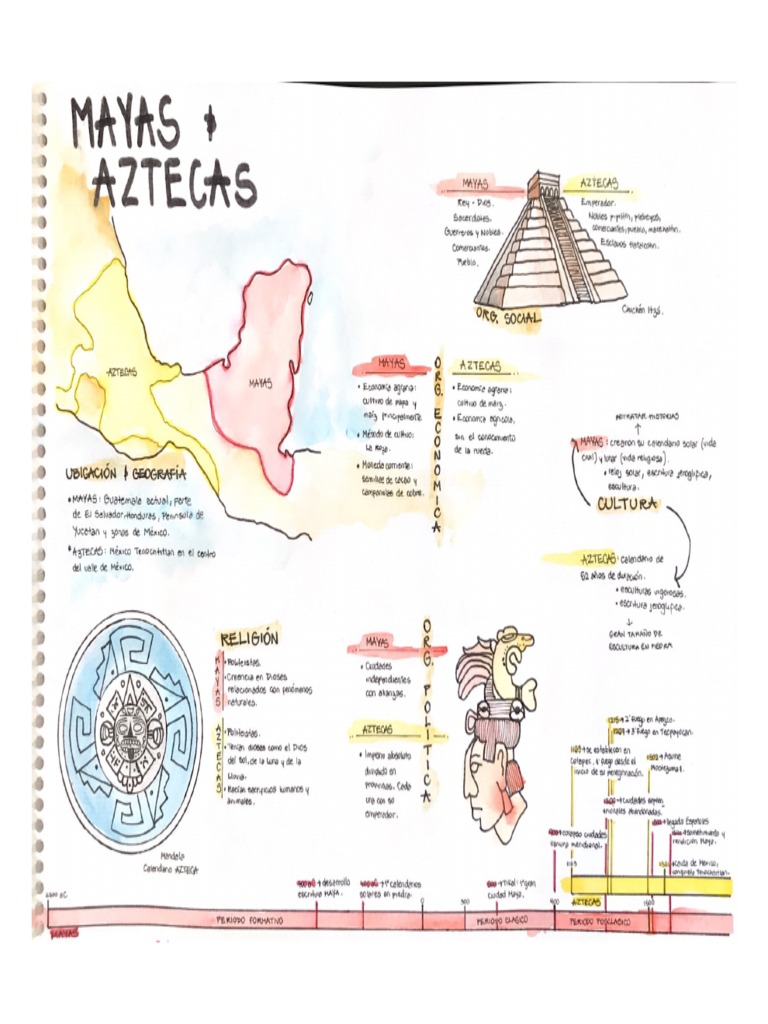 MAYAS &
AZTECAS
MAYAS
Rey - Dios.
Sacerdotes.
Guerreros y Nobles.
Comerciantes.
Pueblo.
AZTECAS
Emperador.
Nobles plebeyos,
comerciantes, pueblo,
Esclavos
ORG. SOCIAL
Chichén Itzá.
AZTECAS
MAYAS
MAYAS
• Economía agraria:
cultivo de papa y
maíz principalmente
• Método de cultivo:
La Roza.
• Moneda corriente:
semillas de cacao y
campanillas de cobre.
ORG. ECONOMICA
AZTECAS
• Economía agraria:
cultivo de maíz.
• Economía agrícola,
sin el conocimiento
de la rueda.
UBICACIÓN & GEOGRAFÍA
• MAYAS: Guatemala actual, parte
de El Salvador, Honduras, Península de
Yucatan y zonas de México.
• AZTECAS: México Tenochtitlan en el centro
del valle de México.
RETRATAR HISTORIAS
MAYAS: crearon su calendario solar (vida
civil) y lunar (vida religiosa).
• reloj solar, escritura jeroglífica,
escultura.
CULTURA
AZTECAS: calendario de
52 años de duración.
• esculturas vigorosas.
• escritura jeroglífica.
GRAN TAMAÑO DE
ESCULTURA EN PIEDRA
RELIGIÓN
MAYAS
• Politeístas.
• Creencia en Dioses
relacionados con fenómenos
naturales.
AZTECAS
• Politeístas.
• Tenían dioses como el Dios
del sol, de la luna y de la
lluvia.
• Hacían sacrificios humanos y
animales.
Mandala
Calendario AZTECA
ORG. POLITICA
MAYAS
• Ciudades
independientes
con alianzas.
AZTECAS
• Imperio absoluto
dividido en
provincias. Cada
una con su
emperador.
1215 → 2° fuego en Apazco.
3° fuego en Tecpayocan.
se establecen en
Coatepec, 1° fuego desde el
inicio de su peregrinación.
1502 → Asume
Moctezuma I.
→ ciudades
abandonadas.
→ llegada Españoles
→ sometimiento y
rendición Maya.
→ colapso ciudades
meridional.
→ Caida de México,
Tenochtitlan.
→ desarrollo
escritura MAYA.
→ 1° calendarios
solares en piedra.
→ Tikal: 1° gran
ciudad Maya.
AZTECAS
0
300
900
1500
PERIODO FORMATIVO
PERIODO CLASICO
PERIODO POSCLASICO
MAYAS